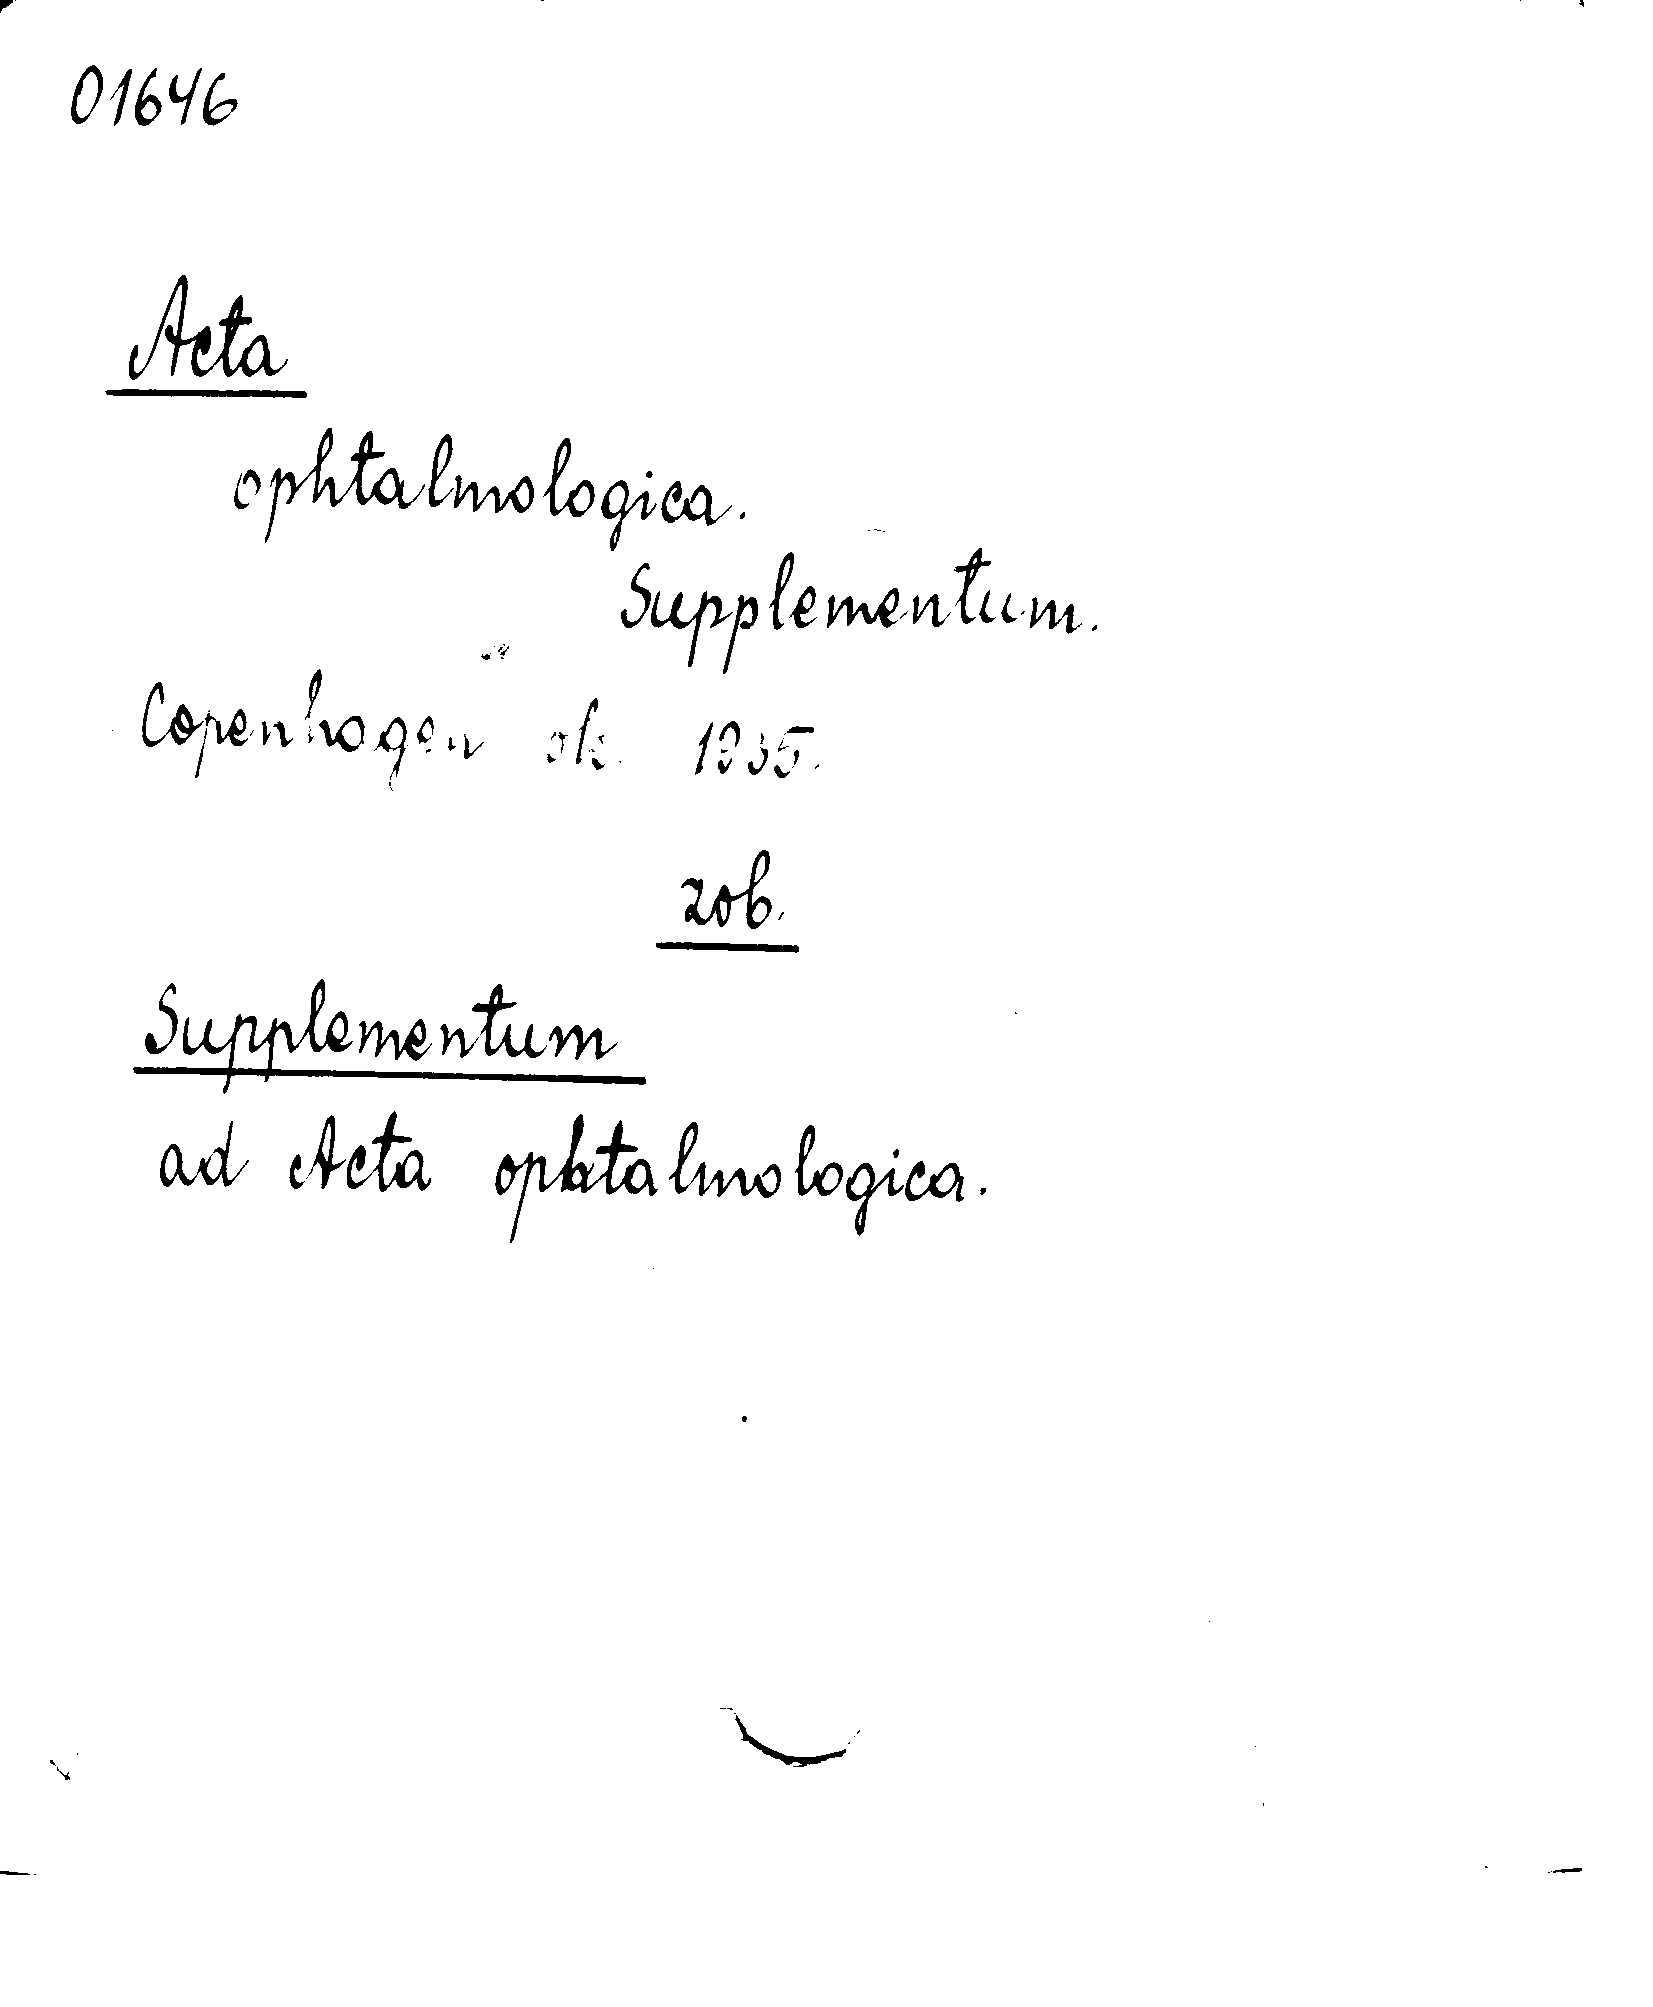 01646
Acta
ophtalmologica.
Supplementum.
Copenhagen ok. 1935.
zob.
Supplementum
ad Acta ophtalmologica.